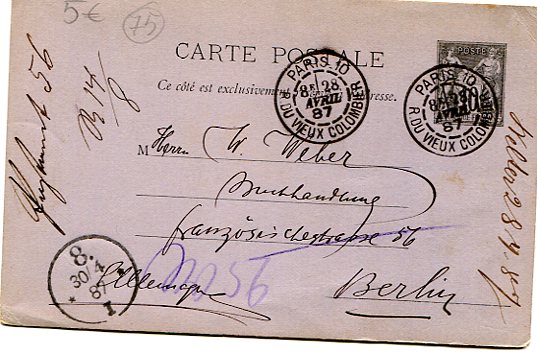 5€ 75
CARTE POSTALE
Ce côté est exclusivement réservé à l'adresse.
POSTE
PARIS 10
8E 28
AVRIL
87
R. DU VIEUX COLOMBIER
PARIS 10
8E 28
AVRIL
87
R. DU VIEUX COLOMBIER
M Herrn W. Weber
Buchhandlung
französischestrasse 56
Berlin
Allemagne
56
8.
30/4
87
I
28.4.87